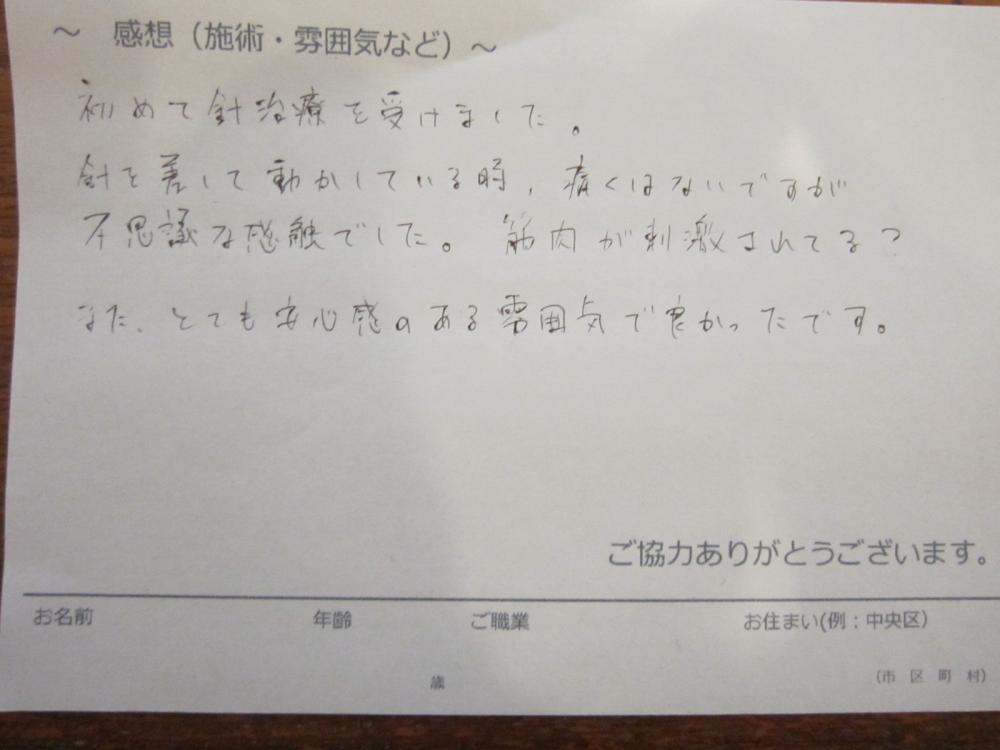 ～ 感想（施術・雰囲気など）～
初めて針治療を受けました。
針を差して動かしている時、痛くはないですが
不思議な感触でした。 筋肉が刺激されてる？
また、とても安心感のある雰囲気で良かったです。
ご協力ありがとうございます。
お名前 年齢 ご職業 お住まい(例：中央区）
歳 （市 区 町 村）